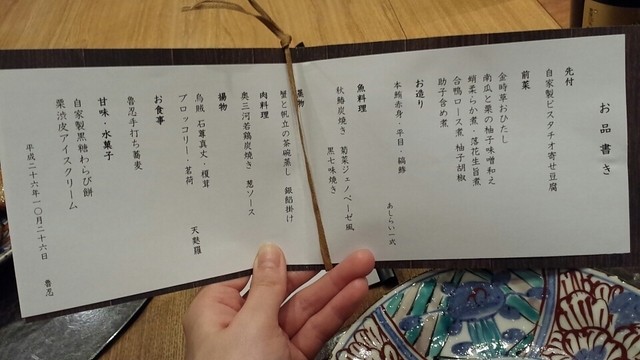 お品書き
先付
自家製ピスタチオ寄せ豆腐
前菜
金時草おひたし
南瓜と栗の柚子味噌和え
蛸柔らか煮・落花生旨煮
合鴨ロース煮 柚子胡椒
助子含め煮
お造り
本鮪赤身・平目・縞鯵
あしらい一式
魚料理
秋鯖炭焼き 菊菜ジェノベーゼ風
黒七味焼き
蒸物
蟹と帆立の茶碗蒸し 銀餡掛け
肉料理
奥三河若鶏炭焼き 葱ソース
揚物
烏賊・石茸真丈・榎茸
ブロッコリー・茗荷
天麩羅
お食事
魯忍手打ち蕎麦
甘味・水菓子
自家製黒糖わらび餅
栗渋皮アイスクリーム
平成二十六年一〇月二十六日 魯忍